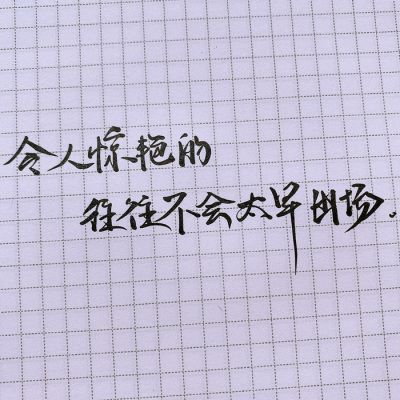 令人惊艳的
往往不会太早出场.